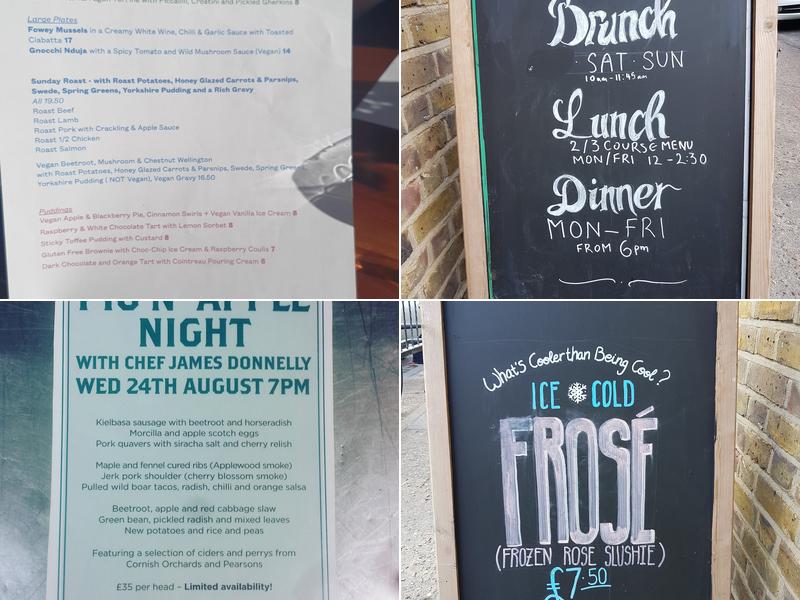 Tart with Piccalilli, Crostini and Pickled Gherkins 8
Large Plates
Fowey Mussels in a Creamy White Wine, Chilli & Garlic Sauce with Toasted
Ciabatta 17
Gnocchi Nduja with a Spicy Tomato and Wild Mushroom Sauce (Vegan) 14
Sunday Roast - with Roast Potatoes, Honey Glazed Carrots & Parsnips,
Swede, Spring Greens, Yorkshire Pudding and a Rich Gravy
All 19.50
Roast Beef
Roast Lamb
Roast Pork with Crackling & Apple Sauce
Roast 1/2 Chicken
Roast Salmon
Vegan Beetroot, Mushroom & Chestnut Wellington
with Roast Potatoes, Honey Glazed Carrots & Parsnips, Swede, Spring Green
Yorkshire Pudding ( NOT Vegan), Vegan Gravy 16.50
Puddings
Vegan Apple & Blackberry Pie, Cinnamon Swirls + Vegan Vanilla Ice Cream 8
Raspberry & White Chocolate Tart with Lemon Sorbet 8
Sticky Toffee Pudding with Custard 8
Gluten Free Brownie with Choc-Chip Ice Cream & Raspberry Coulis 7
Dark Chocolate and Orange Tart with Cointreau Pouring Cream 8
Brunch
· SAT · SUN
10am-11:45am
Lunch
2/3 COURSE MENU
MON/FRI 12-2:30
Dinner
MON-FRI
FROM 6pm
PIG N' APPLE
NIGHT
WITH CHEF JAMES DONNELLY
WED 24TH AUGUST 7PM
Kielbasa sausage with beetroot and horseradish
Morcilla and apple scotch eggs
Pork quavers with siracha salt and cherry relish
Maple and fennel cured ribs (Applewood smoke)
Jerk pork shoulder (cherry blossom smoke)
Pulled wild boar tacos, radish, chilli and orange salsa
Beetroot, apple and red cabbage slaw
Green bean, pickled radish and mixed leaves
New potatoes and rice and peas
Featuring a selection of ciders and perrys from
Cornish Orchards and Pearsons
£35 per head – Limited availability!
What's Cooler than Being Cool?
ICE COLD
FROSÉ
(FROZEN ROSE SLUSHIE)
£7.50